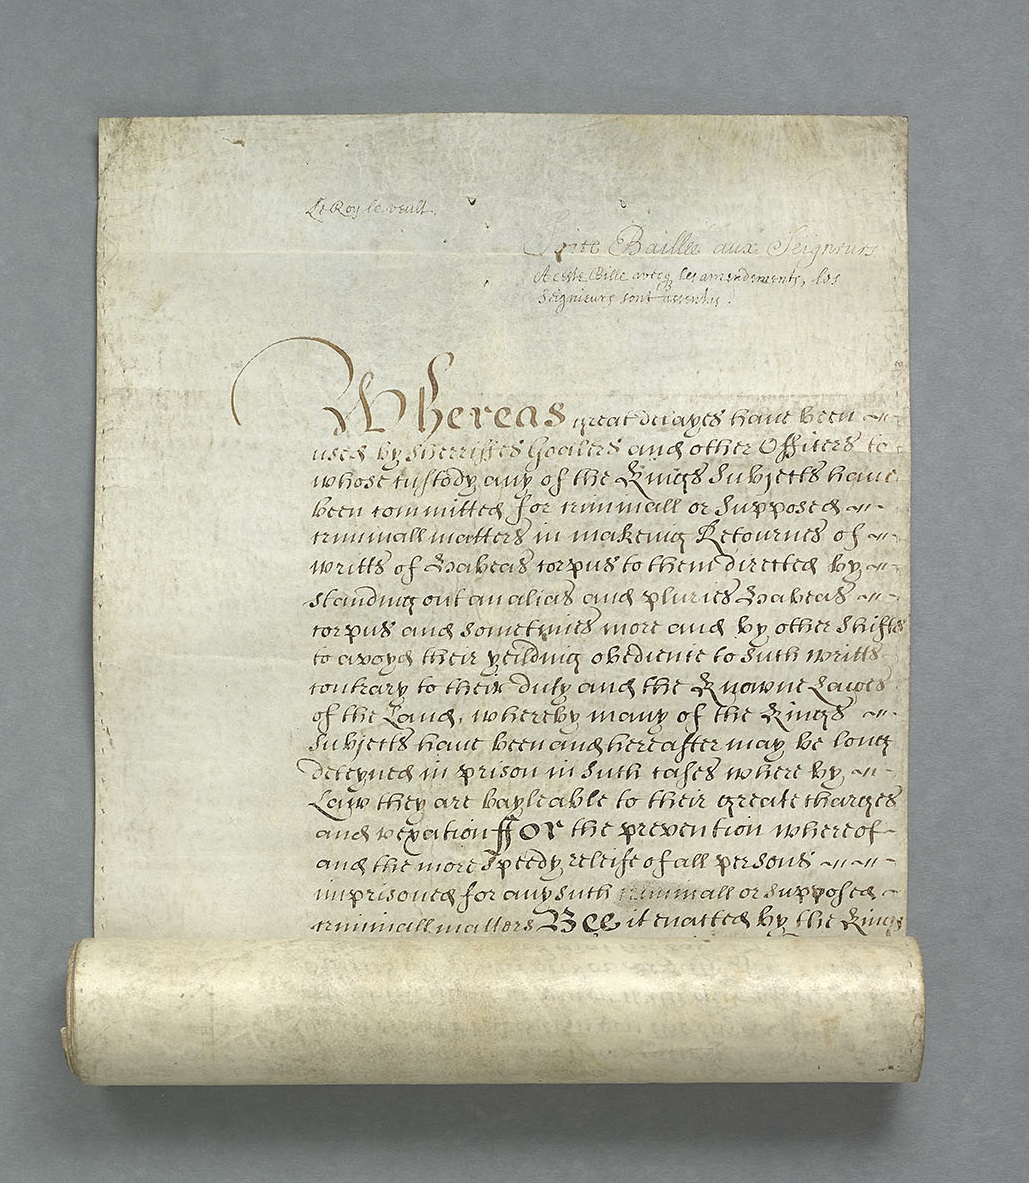 Le Roy le veult.
Soit Baillé aux Seigneurs
A ceste Bille avecq les amendements, les
Seigneurs sont assentus.
Whereas great delayes have been
used by Sherriffes Goalers and other Officers to
whose custody any of the Kings Subjects have
been committed for criminall or Supposed
criminall matters in makeing Retournes of
writts of Habeas corpus to them directed by
standing out an alias and pluries Habeas
corpus and sometimes more and by other shifts
to avoyd their yeilding obedience to Such writts
contrary to their duty and the Knowne Lawes
of the Land, whereby many of the Kings
Subjects have been and hereafter may be long
deteyned in prison in Such cases where by
Law they are bayleable to their greate charges
and vexation ffor the prevention whereof
and the more Speedy releife of all persons
imprisoned for any Such criminall or supposed
criminall matters Bee it enacted by the Kings